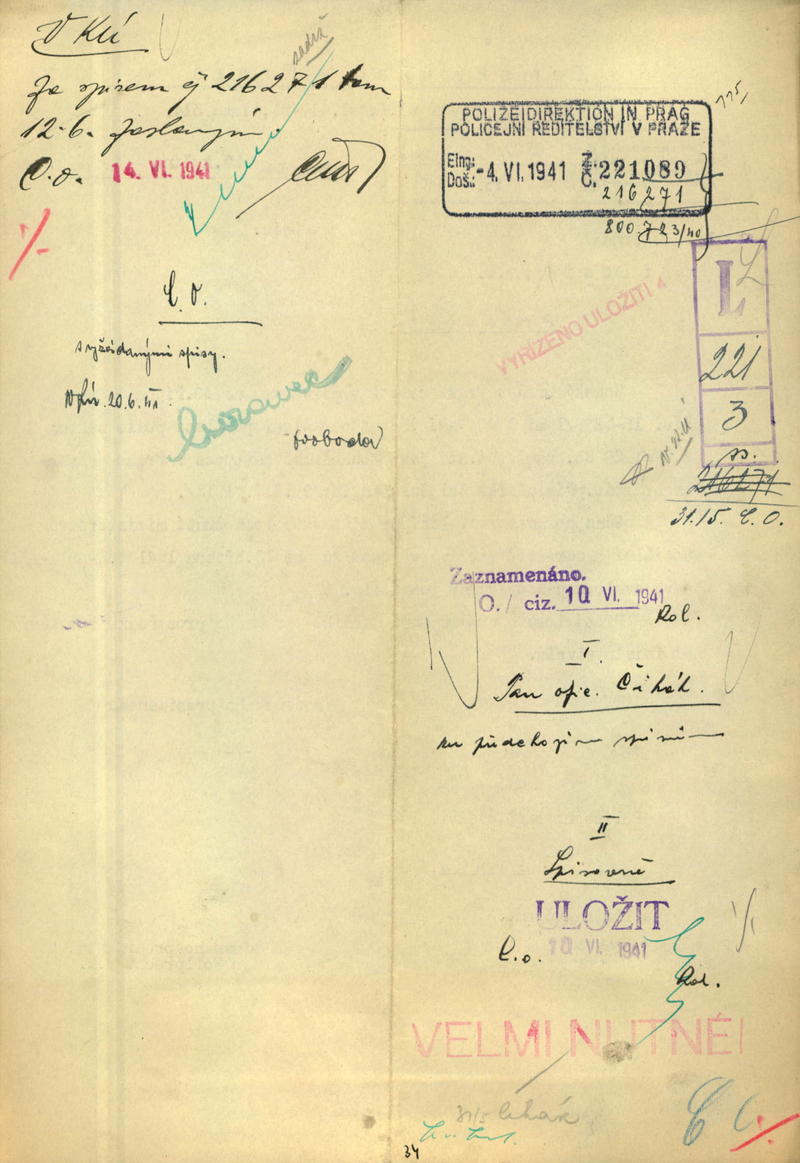 V KÚ
Za spisem čj 216271 tam
12.6. zaslaným
C.o. 14. VI. 1941
C. O.
s vyžádanými spisy.
20.6.41
Svoboda
POLIZEIDIREKTION IN PRAG
POLICEJNÍ ŘEDITELSTVÍ V PRAZE
Eing.:
Doš.: -4. VI. 1941 Z.: Č. 221089
216271
800723/40
VYŘÍZENO ULOŽITI 4
L
221
3
216271
31./5. C. O.
Zaznamenáno.
O. / ciz. 10 VI. 1941
Rol.
I.
Pan ofic. Čihák.
ku předchozím spisům
II
Spisovně
ULOŽIT
C.o. 10 VI. 1941
Rol.
VELMI NUTNÉ!
31/5 Čihák
34